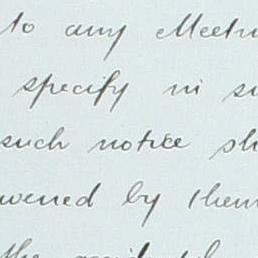 to any Meetin
specify in su
such notice sh
wened by them
the